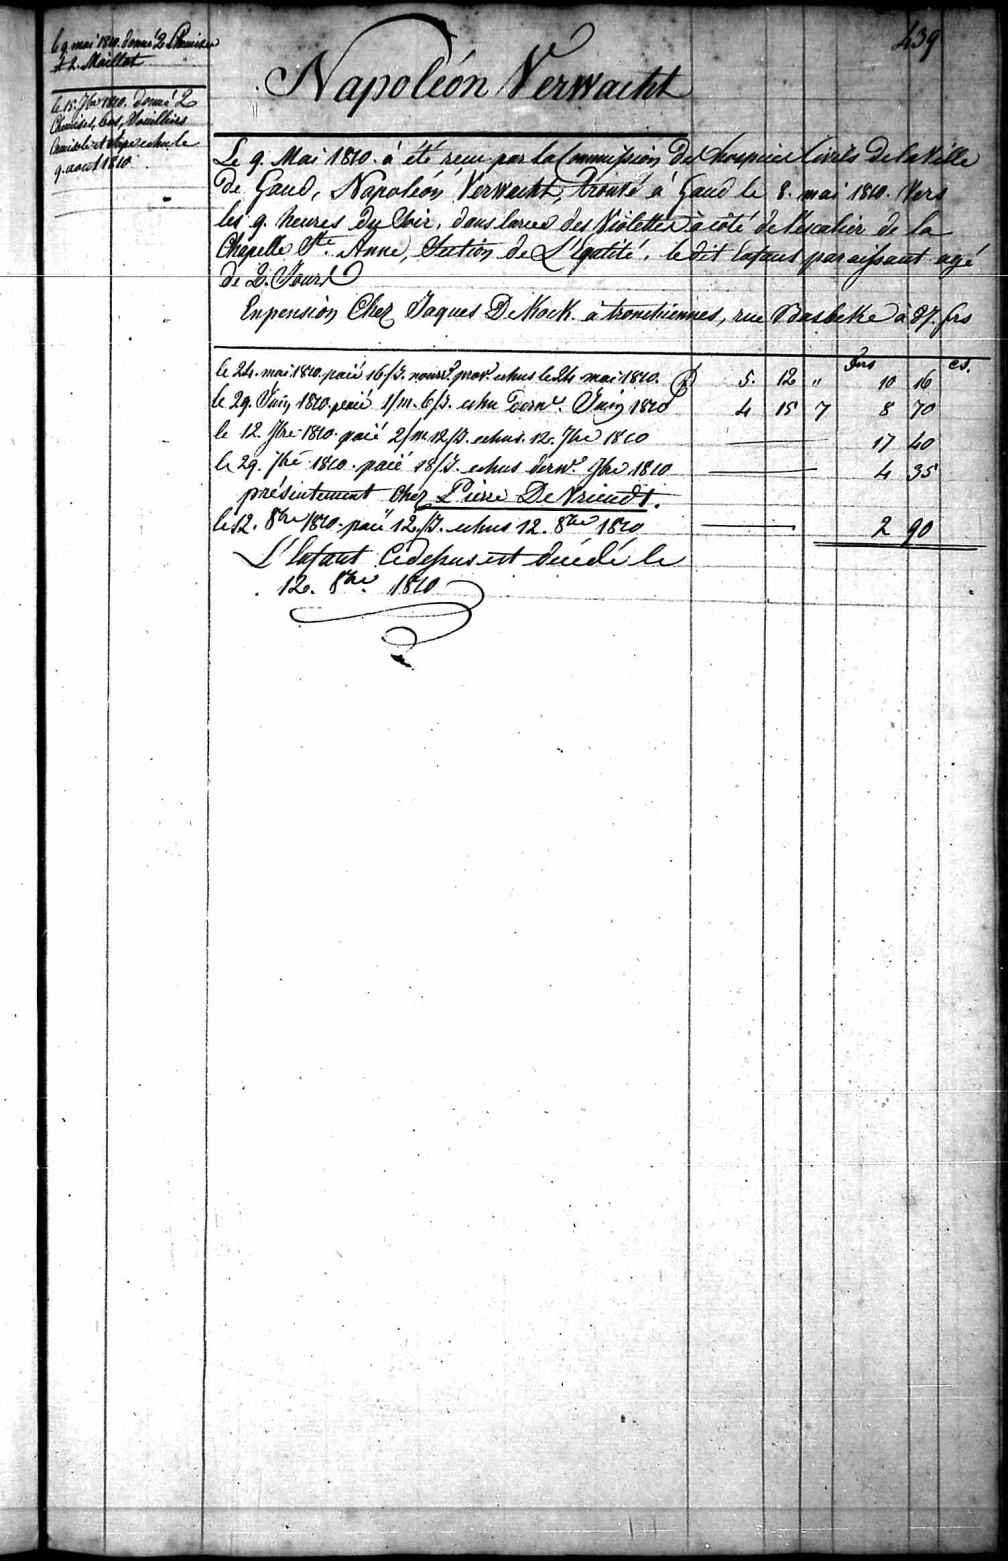 439
le 9. mai 1810. donné 2 Chemises
& 2. Maillot
le 15. 7bre 1810. donné 2
Chemises, bas,
Camisole et echu le
9. aout 1810.
Napoléon Verwacht
Le 9. Mai 1810. à été recu par la Commission des hospices Civils de la Ville
de Gand, Napoléon Verwacht, trouvé à Gand le 8. mai 1810. Vers
les 9. heures du Soir, dans la rue des Violettes à coté de l'escalier de la
Chapelle Ste. Anne, Section de L'Egalité. le dit Enfant paraissant agé
de 2. Jours
En pension Chez Jaques De Kock à tronchiennes, rue Basbeke à 87. frs
frs cs.
le 24. mai 1810. paié 16/J. nourr. prov. echus le 24 mai 1810. 5. 12 " 10 16
le 29. Juin 1810. paié 1/m. 6/J. echu dern. Juin 1810 4 15 7 8 70
le 12. 7bre 1810. paié 2/m 12/J. echus 12. 7bre 1810 17 40
le 29. 7bre 1810. paié 18/J. echus dern. 7bre 1810 4 35
présentement Chez Pierre De Vriendt.
le 12. 8bre 1810. paié 12/J. echus 12. 8bre 1810 2 90
L'Enfant Cidessus est décédé le
12. 8bre. 1810